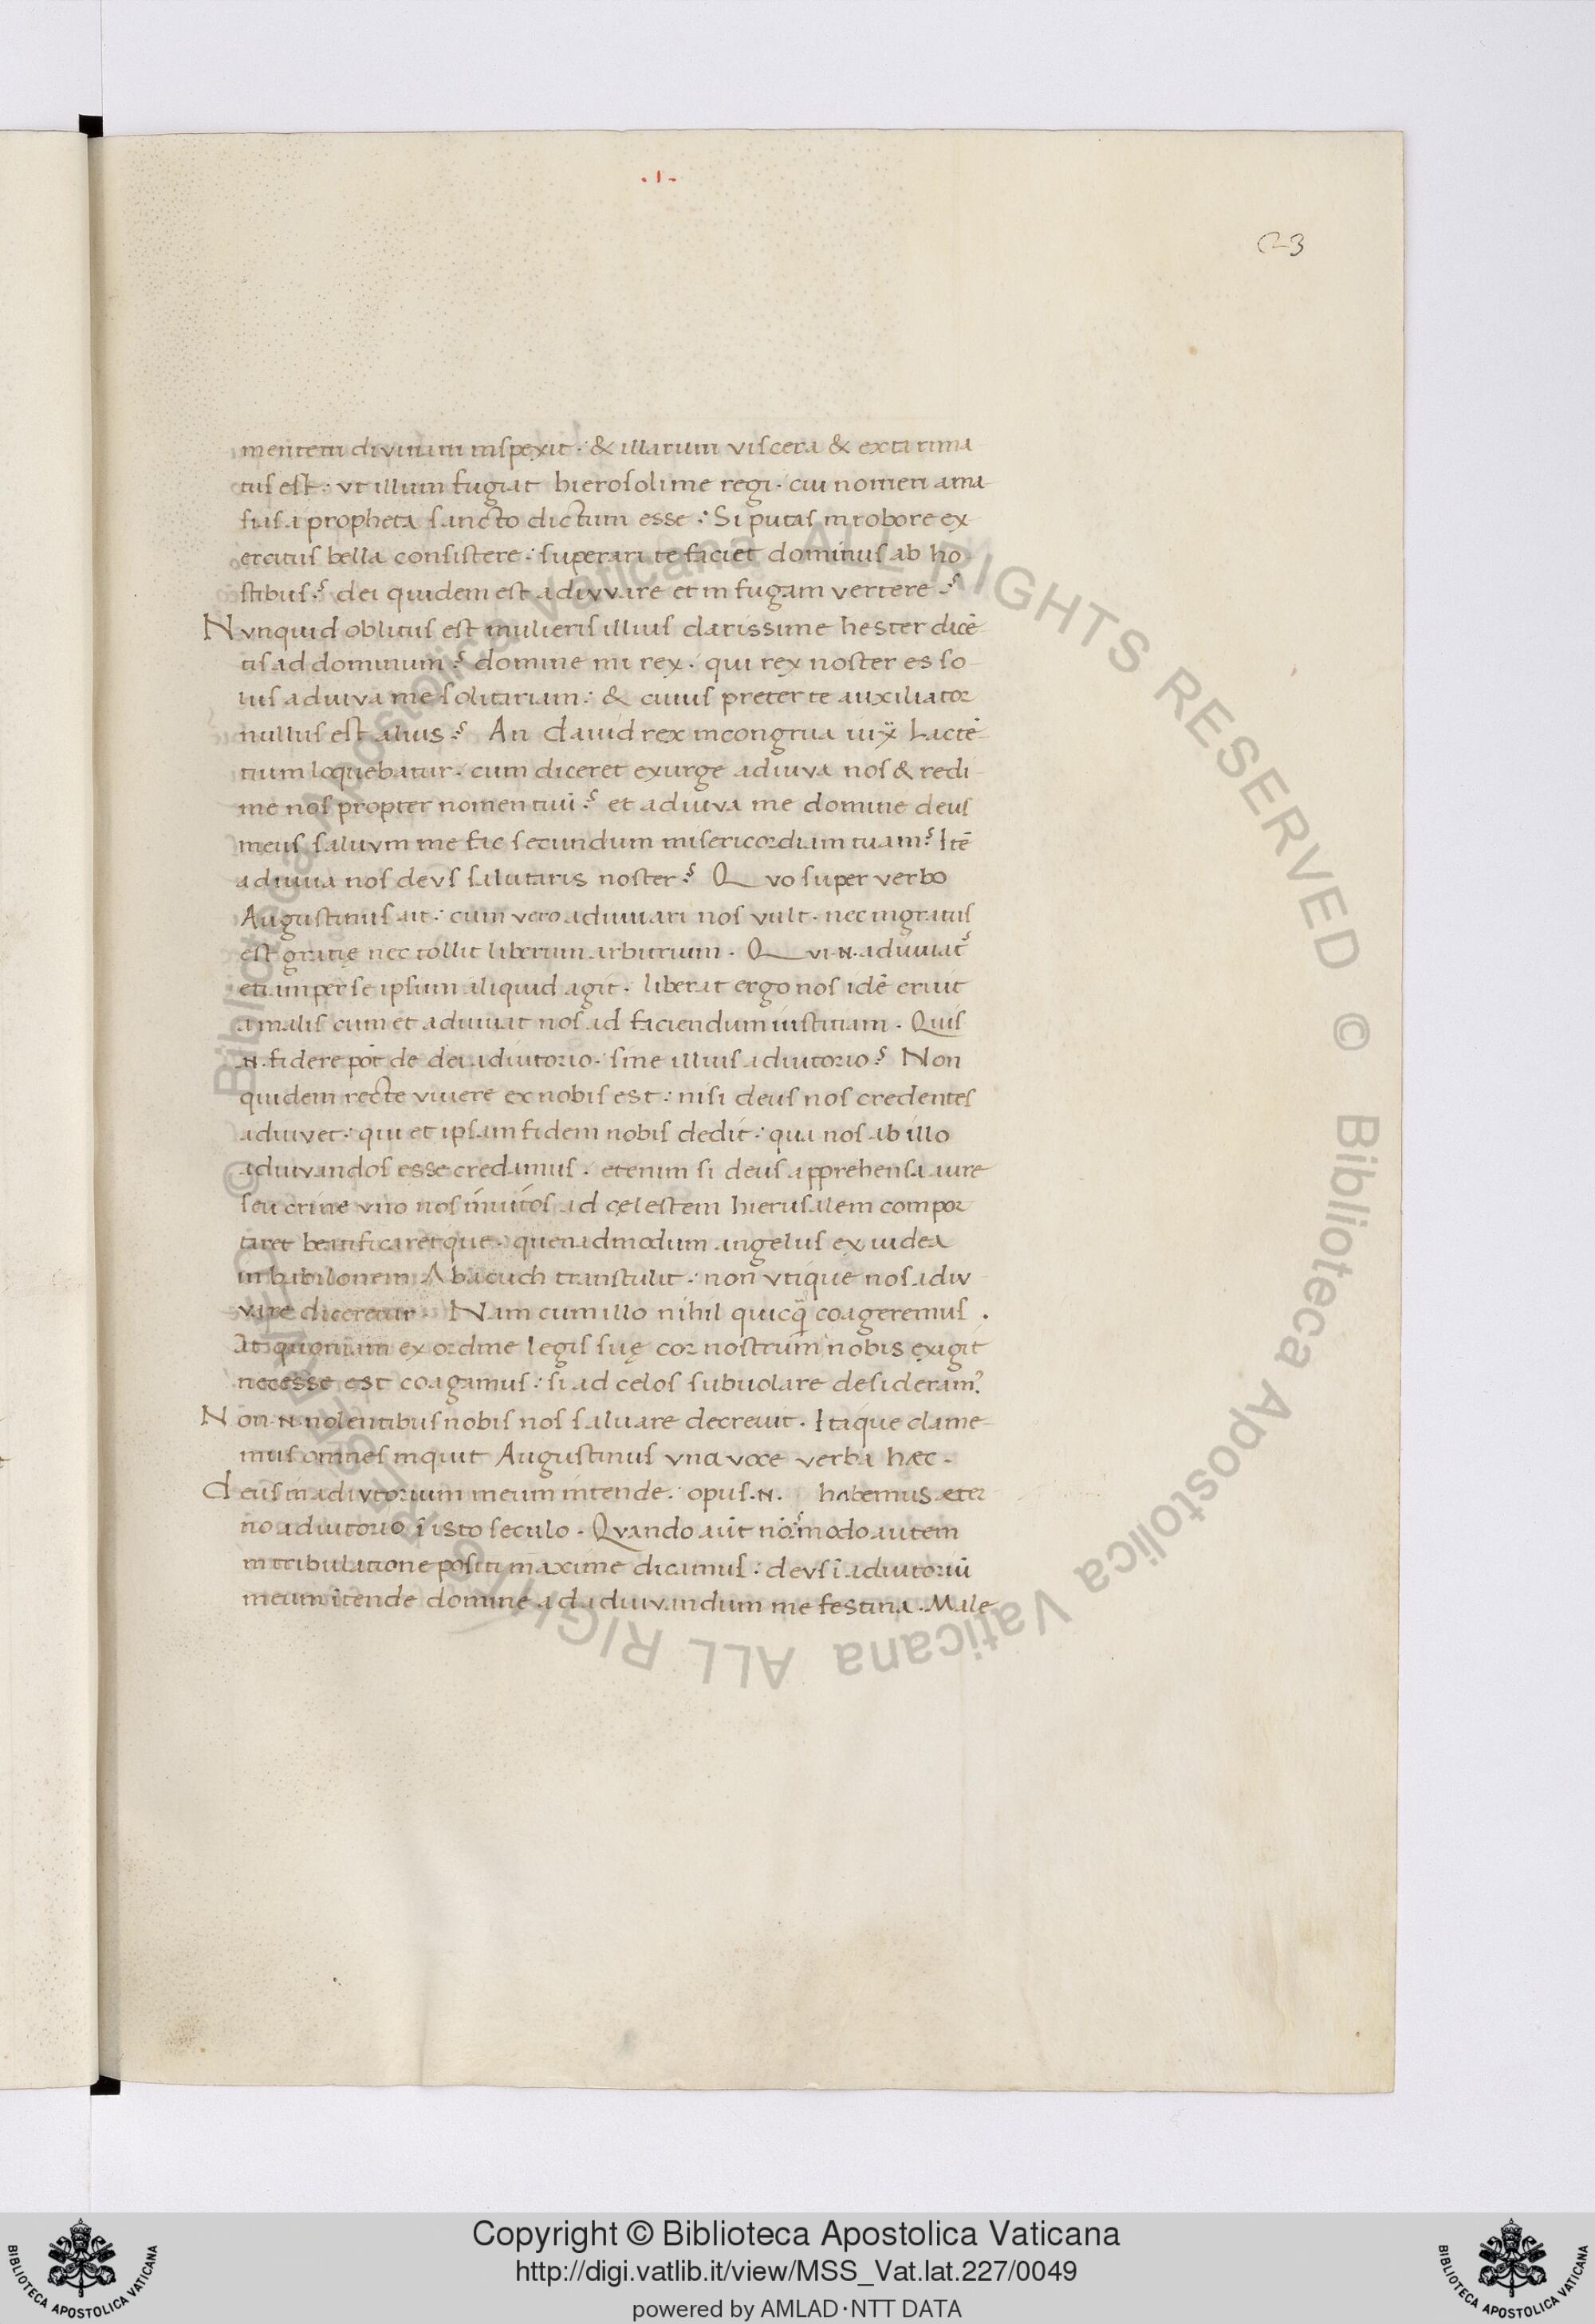 .I.
23
mentem divinam inspexit : & illarum viscera & exta rima
tus est : ut illum fugiat hierosolime regi . cui nomen ama
sias a propheta sancto dictum esse : Si putas in robore ex
ercitus bella consistere : superari te faciet dominus ab ho
stibus ? dei quidem est adiuvare et in fugam vertere ?
Nvnquid oblitus est mulieris illius clarissime hester dicē
tis ad dominum ? domine mi rex . qui rex noster es so
lus adiuva me solitariam : & cuius preter te auxiliator
nullus est alius ? An david rex incongrua lactē
tium loquebatur . cum diceret exurge adiuva nos & redi
me nos propter nomen tuū ? et adiuva me domine deus
meus salvvm me fac secundum misericordiam tuam ? Itē
adiuua nos devs salutaris noster ? Qvo super verbo
Augustinus ait : cum vero adiuuari nos vult . nec ingratus
est gratię nec tollit liberum arbitrium . Qvi .N. adiuuat ?
etiam per se ipsum aliquid agit . liberat ergo nos idē eruit
a malis cum et adiuuat nos ad faciendum iustitiam . Quis
.N. fidere pōt de dei adiutorio . sine illius adiutorio ? Non
quidem recte viuere ex nobis est : nisi deus nos credentes
adiuvet : qui et ipsam fidem nobis dedit : qua nos ab illo
adiuvandos esse credamus . etenim si deus apprehensa aure
seu crine vno nos īnuitos ad cęlestem hierusalem compor
taret beatificaretque . quenadmodum angelus ex iudea
in babilonem Abacuch transtulit : non vtique nos adiv
vare diceretur . Nam cum illo nihil quicq̄ coageremus .
At quoniam ex ordine legis suę cor nostrum nobis exigit
necesse est coagamus : si ad celos subuolare desideram?
Non .N. nolentibus nobis nos saluare decreuit . Itaque clame
mus omnes inquit Augustinus vna voce verba hæc .
deus in adivtorium meum intende : opus .N. habemus æter
no adiutorio ī isto seculo . Qvando aūt nō ? modo autem
in tribulatione positi maxime dicamus : devs ī adiutoriū
meum ītende domine ad adiuvandum me festina . Male
© Biblioteca Apostolica Vaticana ALL RIGHTS RESERVED © Biblioteca Apostolica Vaticana ALL RIGHTS RESERVED
BIBLIOTECA APOSTOLICA VATICANA
Copyright © Biblioteca Apostolica Vaticana
http://digi.vatlib.it/view/MSS_Vat.lat.227/0049
powered by AMLAD・NTT DATA
BIBLIOTECA APOSTOLICA VATICANA